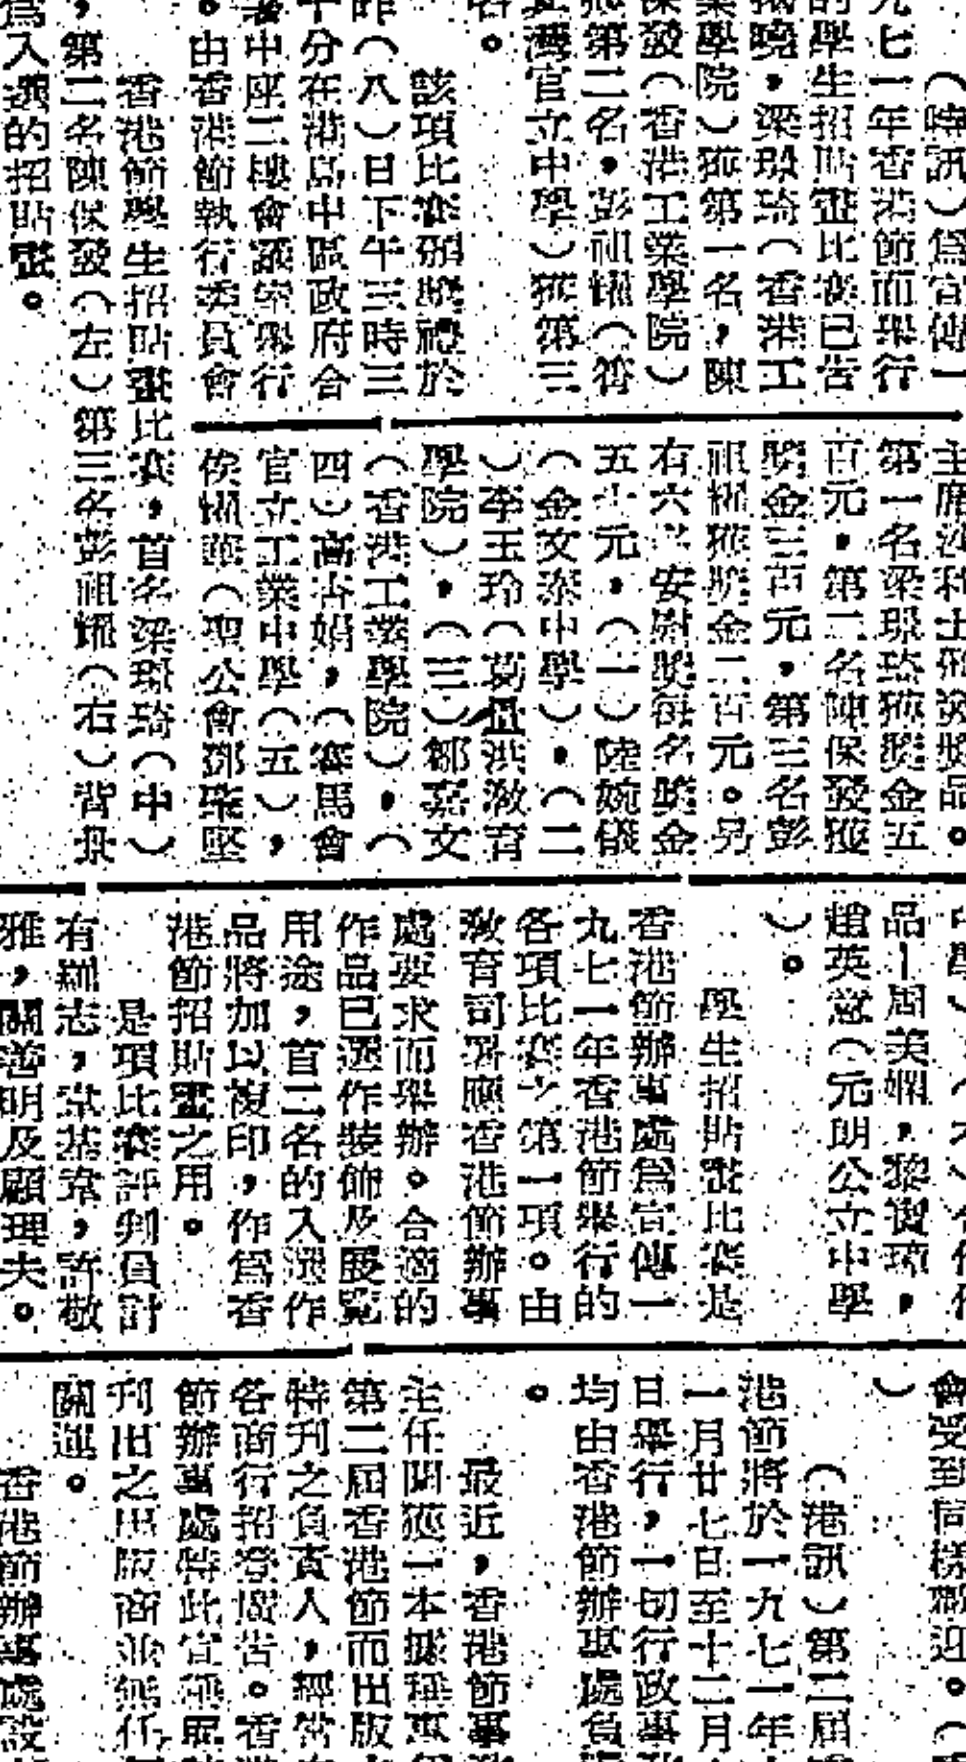 （時訊）為宣傳一
九七一年香港節而舉行
的學生招貼畫比賽已告
揭曉，梁璟琦（香港工
業學院）獲第一名，陳
保發（香港工業學院）
獲第二名，彭祖耀（筲
箕灣官立中學）獲第三
名。
該項比賽頒獎禮於
昨（八）日下午三時三
十分在港島中區政府合
署中座二樓會議室舉行
。由香港節執行委員會
主席沙利士頒發獎品。
第一名梁璟琦獲獎金五
百元，第二名陳保發獲
獎金三百元，第三名彭
祖耀獲獎金二百元。另
有六名安慰獎每名獎金
五十元，（一）陸婉儀
（金文泰中學），（二
）李玉玲（葛量洪教育
學院），（三）鄒嘉文
（香港工業學院），（
四）高杏娟，（賽馬會
官立工業中學（五），
侯耀華（聖公會鄧肇堅
品－周美嫻，黎寶琼，
趙英意（元朗公立中學
）。
學生招貼畫比賽是
香港節辦事處為宣傳一
九七一年香港節舉行的
各項比賽之第一項。由
教育司署應香港節辦事
處要求而舉辦。合適的
作品已選作裝飾及展覽
用途，首二名的入選作
品將加以複印，作為香
港節招貼畫之用。
是項比賽評判員計
有羅志，韋基韋，許敬
雅，關善明及顧理夫。
香港節學生招貼畫比賽，首名梁璟琦（中）
，第二名陳保發（左）第三名彭祖耀（右）背景
為入選的招貼畫。
會受到同樣歡迎。（
）
（港訊）第二屆
港節將於一九七一年
一月廿七日至十二月
日舉行，一切行政事
均由香港節辦事處負
。
最近，香港節事
主任聞獲一本據稱
第二屆香港節而出版
特刊之負責人，經常
各商行招登廣告。香港
節辦事處特此宣
刊出之出版商並無任
關連。
香港節辦事處設